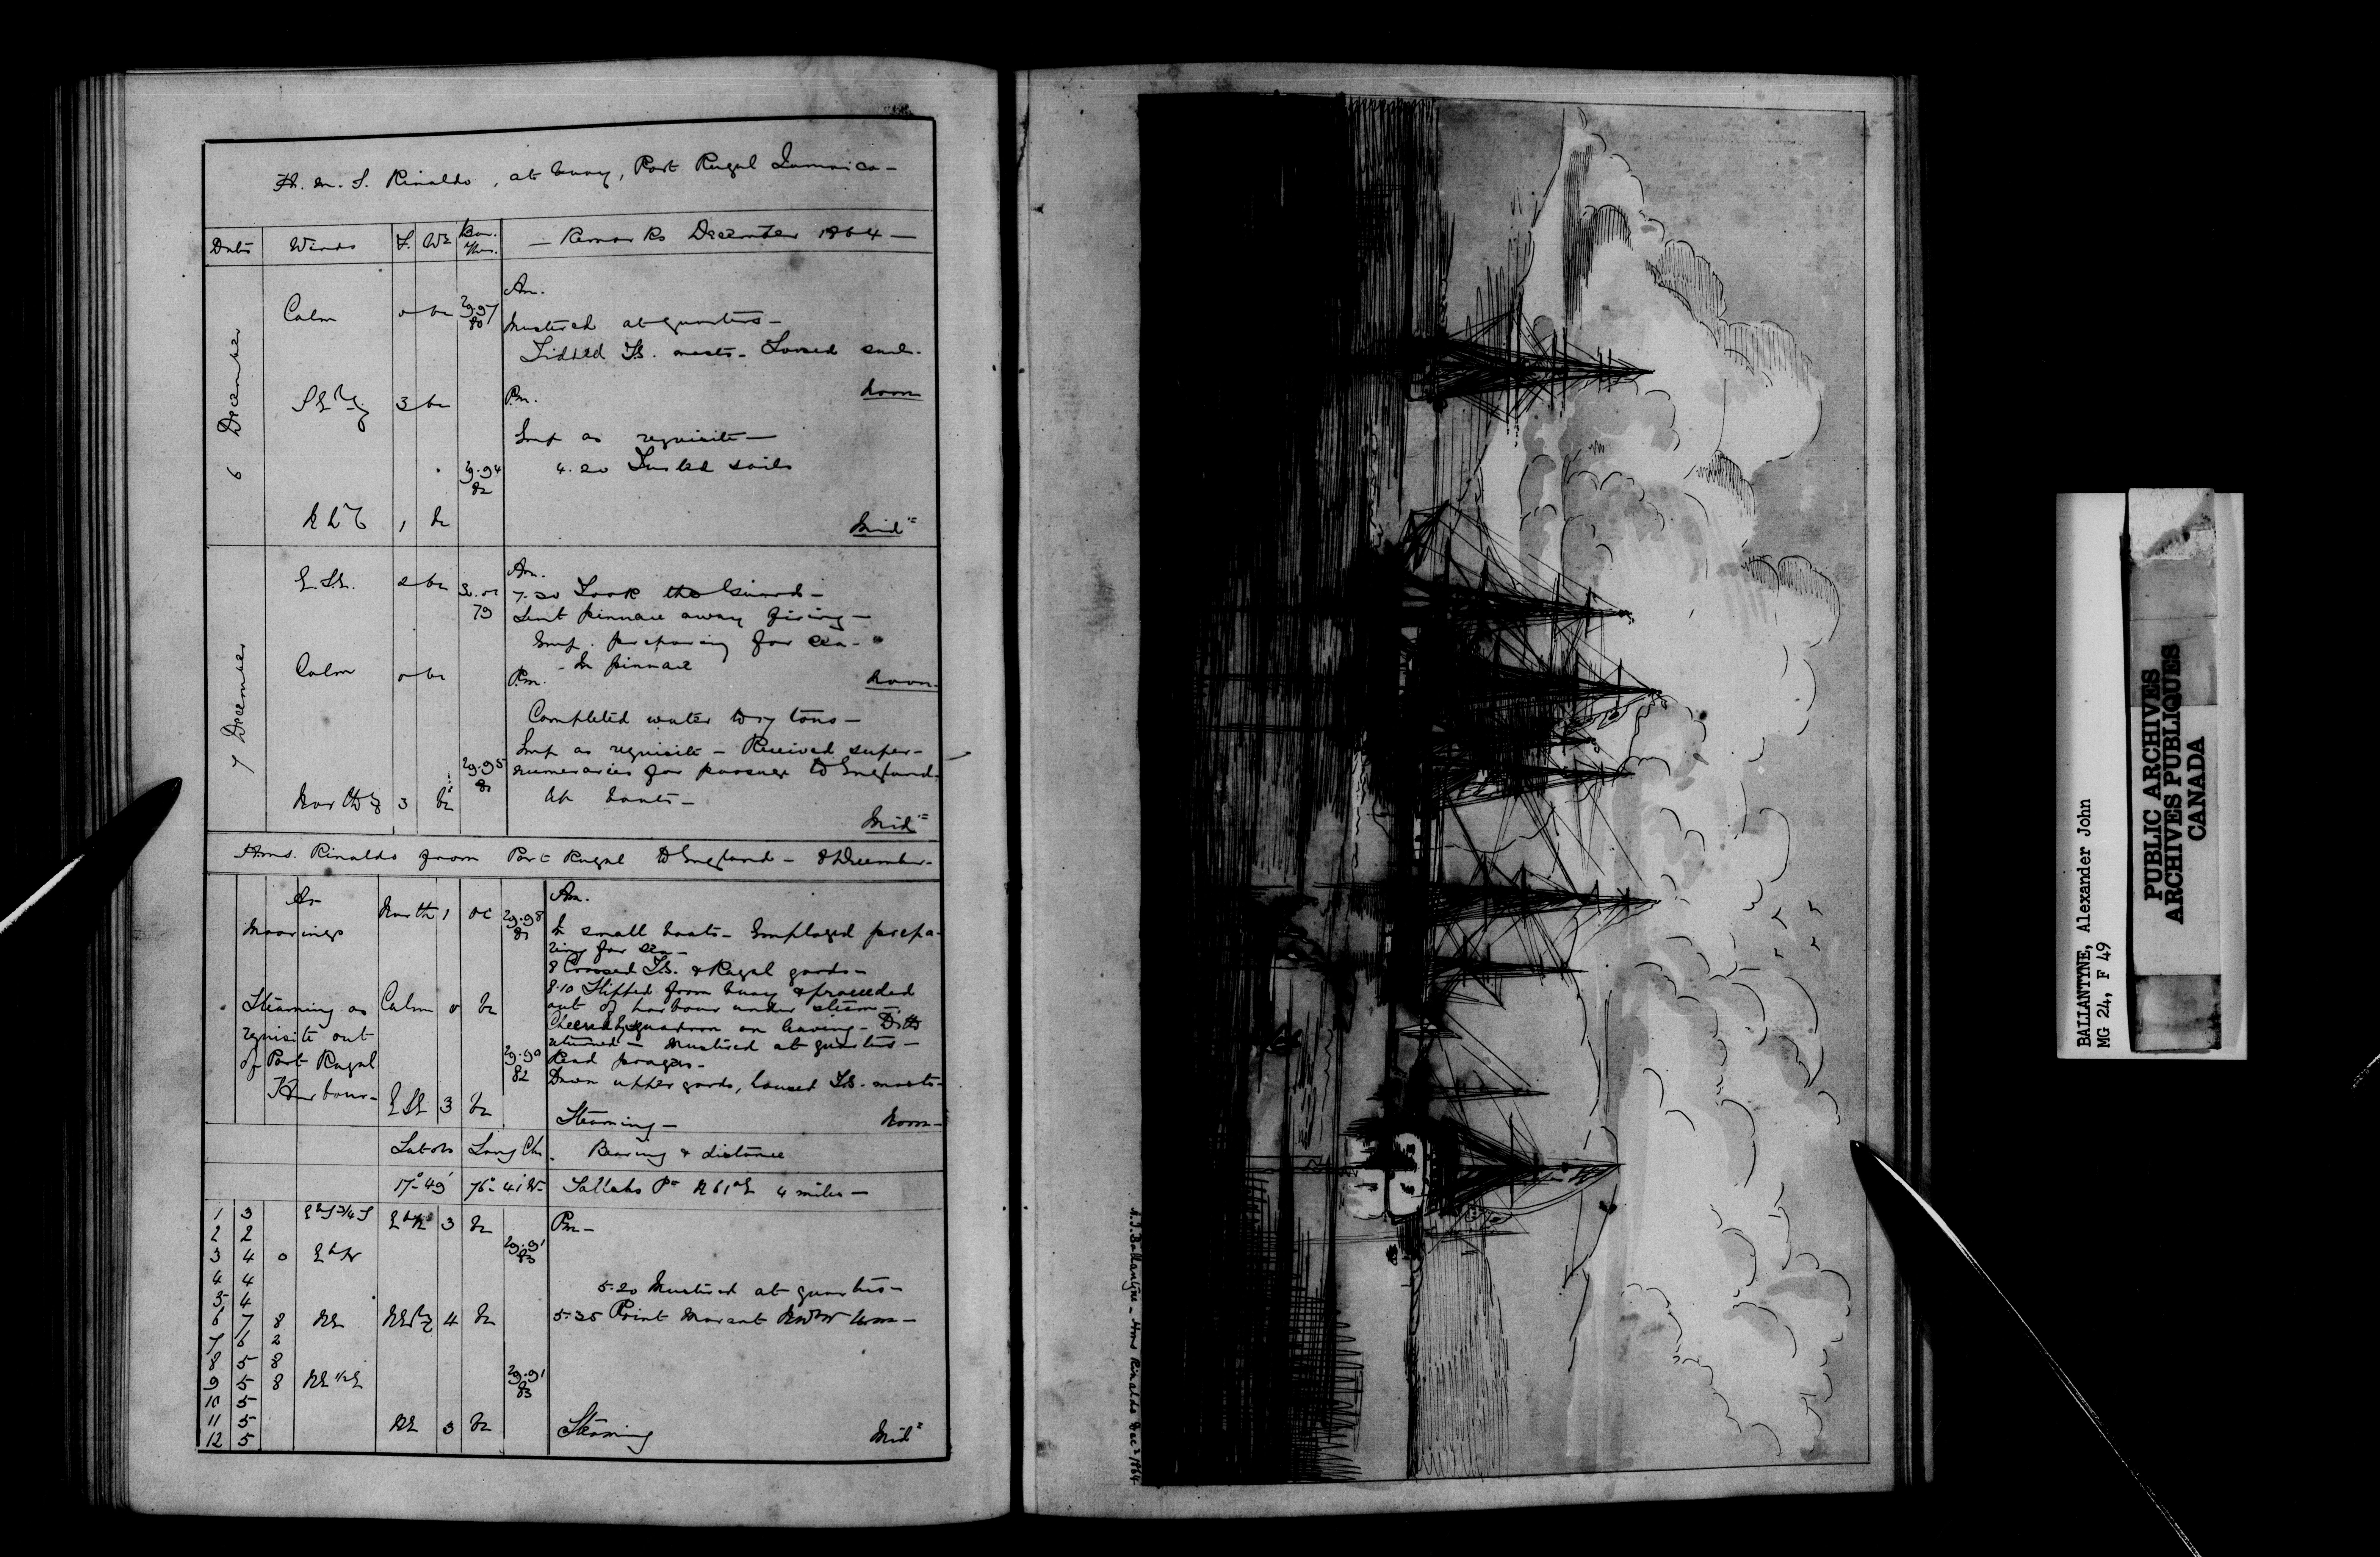 H. M. S. Rinaldo, at buoy, Port Royal Jamaica -
Date Winds F. Wr Bar. Ther. - Remarks December 1864 -
6 December
Am.
Calm 0 bc 29.97 80
Mustered at quarters -
Fidded T.G. masts - Loosed sails.
Noon
SE 3 bc
Pm.
Emp as requisite -
4.20 Furled sails
29.94 82
1 bc
Midt
7 December
Am.
E.S.E. 2 bc
7.30 Took the Guard -
79
Sent pinnace away firing -
Emp. preparing for sea -
- In pinnace
Calm 0 bc
Noon.
Pm.
Completed water to 27 tons -
Emp as requisite - Received super-
29.95 81
numeraries for passage to England.
North 3 bc
Up boats -
Midt
H.M.S. Rinaldo from Port Royal to England - 8 December -
At
Moorings
North 1 oc 29.98 81
Am.
In small boats - Employed prepa-
ring for sea -
8 Crossed T.G. & Royal yards -
8.10 Slipped from buoy & proceeded
out of harbour under steam -
Cheered Squadron on leaving - Ditto
returned - Mustered at quarters -
Read prayers -
Down upper yards, housed T.G. masts -
Steaming - Noon -
Steaming as
requisite out
of Port Royal
Harbour -
Calm 0 bc
29.90 82
ESE 3 bc
Lat Obs Long Chr. Bearing & distance
17°-49' 76°-41 W- Yallahs Pt N61°E 4 miles -
1 3 EbS 3/4 S 3 bc Pm -
2 2 29.91 83
3 4 0 EbN
4 4 5.20 Mustered at quarters -
5 4
6 7 8 NE 4 bc 5.35 Point Morant
7 6 2
8 5 8
9 5 8 NE 1/2 E 29.91 83
10 5
11 5 NE 3 bc Steaming Midt
12 5
A.J. Ballantyne - HMS Rinaldo Decr 1864
BALLANTYNE, Alexander John
MG 24, F 49
PUBLIC ARCHIVES
ARCHIVES PUBLIQUES
CANADA